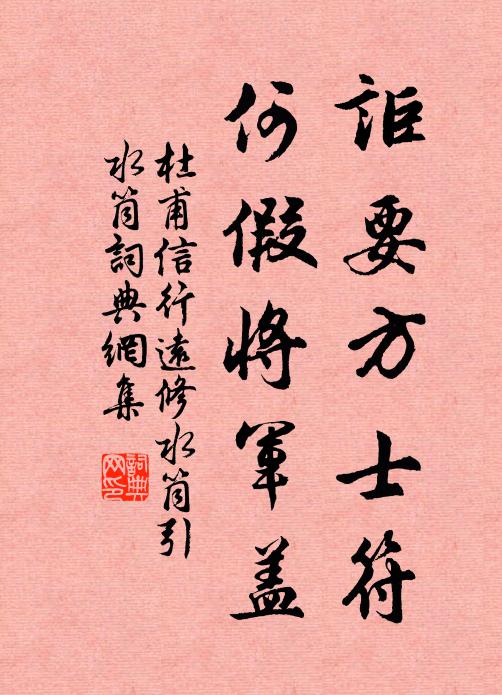 詎要方士符
何假將軍盖
杜甫信行遠修水筒引
水筒詞典網集
詞典
网印